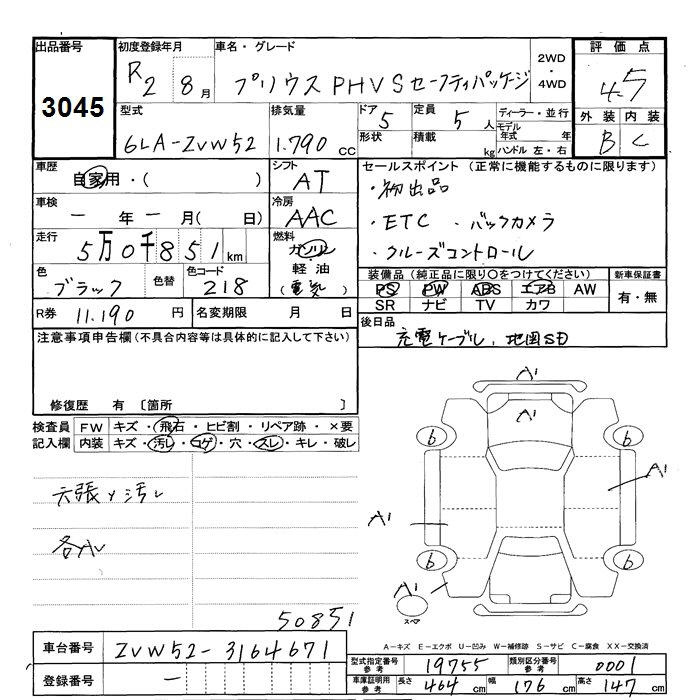 出品番号 初度登録年月 車名・グレード 2WD・4WD 評価点
3045 R2 8月 プリウスPHV Sセーフティパッケージ 4.5
型式 排気量 ドア 定員 ディーラー・並行 外装 内装
6LA-ZVW52 1.790 cc 5 5人 モデル年式 年 B C
形状 積載 kg ハンドル 左・右
車歴 シフト セールスポイント (正常に機能するものに限ります)
自家用・( ) AT ・初出品
車検 冷房 ・ETC ・バックカメラ
ー年ー月( 日) AAC ・クルーズコントロール
走行 燃料
5万0千851km ガソリン
色 色替 色コード 軽油
ブラック 218 (電気)
装備品 (純正品に限り○をつけてください) 新車保証書
PS PW ABS エアB AW 有・無
SR ナビ TV カワ
R券 11.190円 名変期限 月 日
後日品
充電ケーブル、地図SD
注意事項申告欄(不具合内容等は具体的に記入して下さい)
修復歴 有 〔箇所 〕
検査員 FW キズ・飛石・ヒビ割・リペア跡・×要
記入欄 内装 キズ・汚レ・コゲ・穴・スレ・キレ・破レ
天張り汚レ
50851
A1
A1
6 6
A1
A1
6 6
A1
スペア
A-キズ E-エクボ U-凹み W-補修跡 S-サビ C-腐食 XX-交換済
車台番号 ZVW52-3164671
登録番号 ー
型式指定番号 参考 19755 類別区分番号 参考 0001
車庫証明用 参考 長さ 464cm 幅 176cm 高さ 147cm